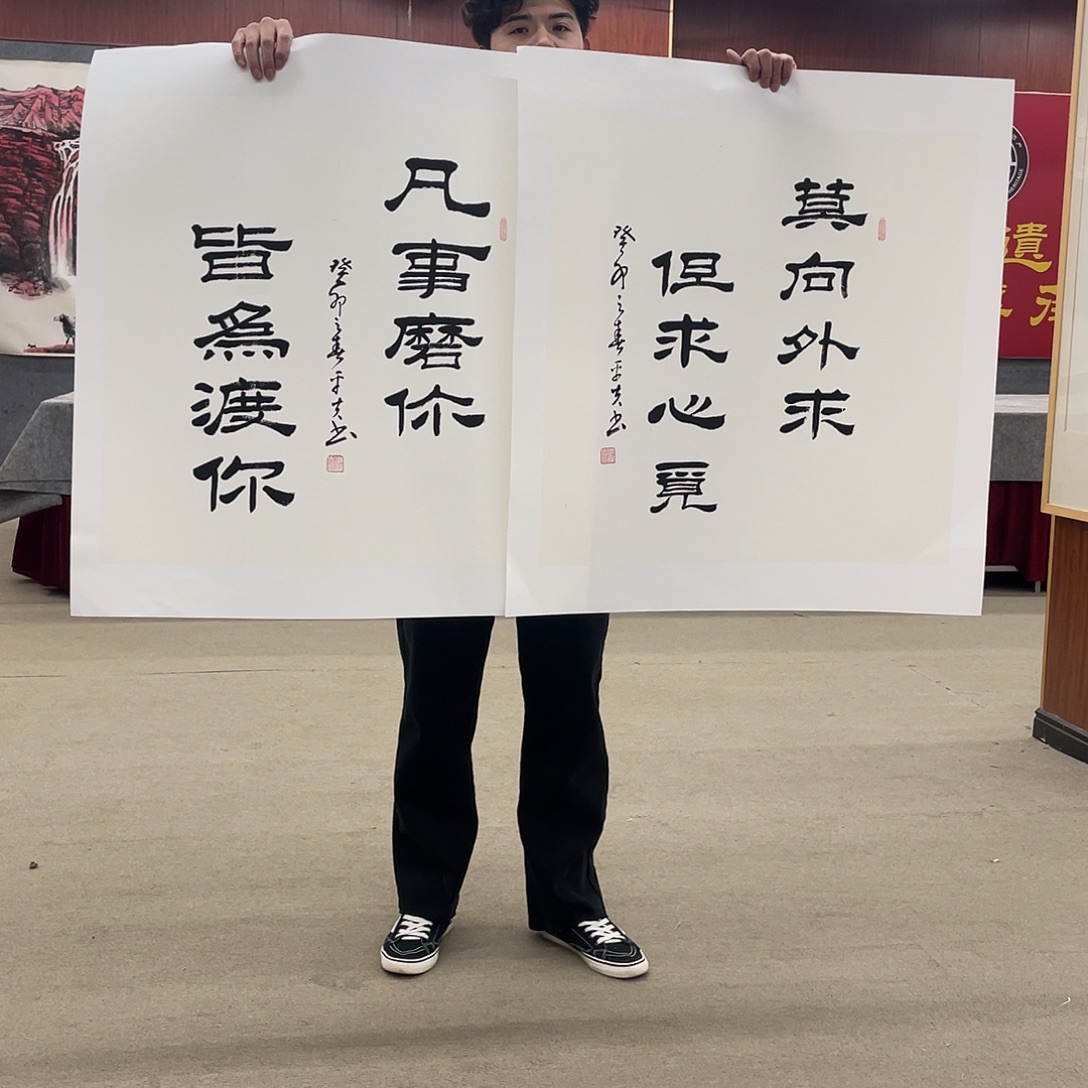 莫向外求
但求心覓
癸卯之春平夫书
凡事磨你
皆為渡你
癸卯之春平夫书
遺